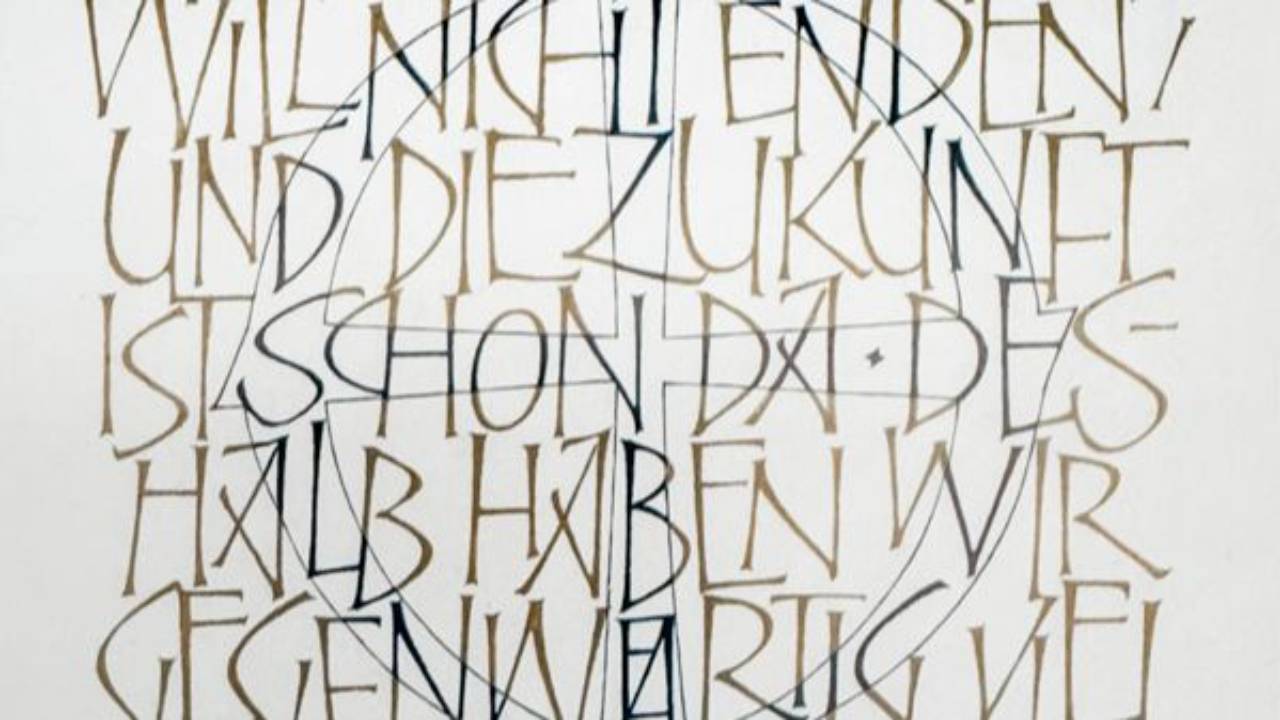 WILL NICHT ENDEN,
UND DIE ZUKUNFT
IST SCHON DA · DES-
HALB HABEN WIR
GEGENWÄRTIG VIEL